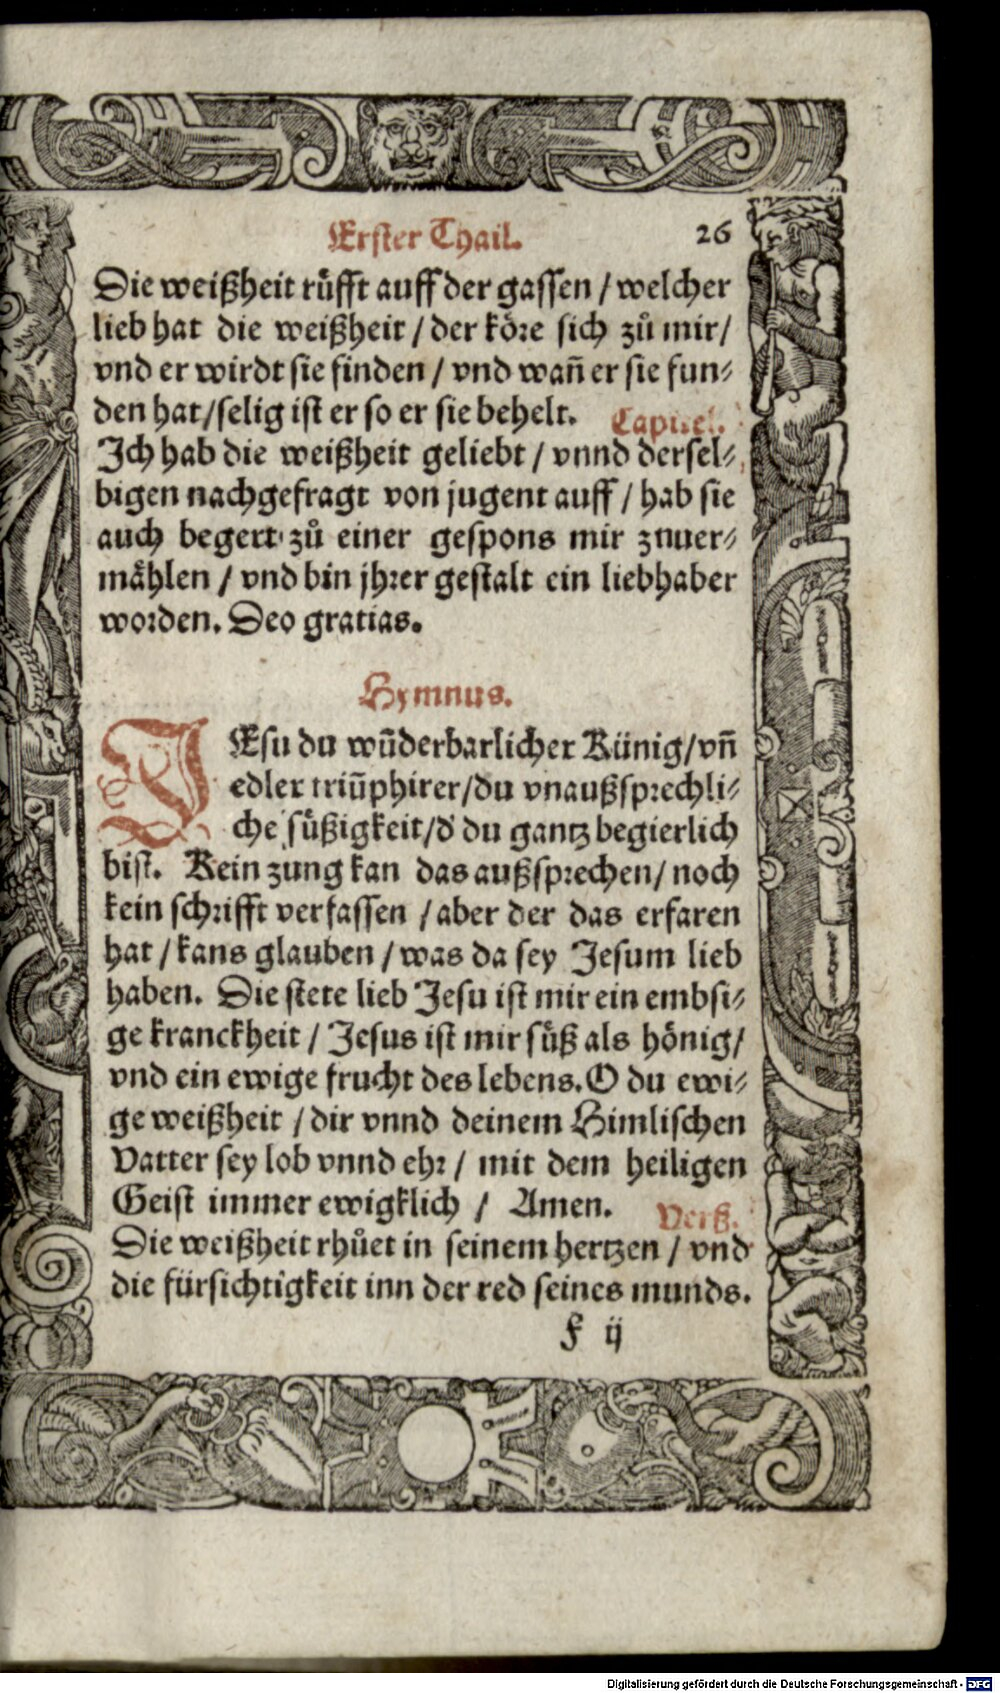 Erster Thail. 26
Die weißheit rüfft auff der gassen / welcher
lieb hat die weißheit / der köre sich zů mir /
vnd er wirdt sie finden / vnd wañ er sie fun-
den hat / selig ist er so er sie behelt. Capitel.
Ich hab die weißheit geliebt / vnnd dersel-
bigen nachgefragt von jugent auff / hab sie
auch begert zů einer gespons mir znuer-
mählen / vnd bin jhrer gestalt ein liebhaber
worden. Deo gratias.
Hymnus.
JEsu du wũderbarlicher Künig / vñ
edler triũphirer / du vnaußsprechli-
che süßigkeit / d' du gantz begierlich
bist. Kein zung kan das außsprechen / noch
kein schrifft verfassen / aber der das erfaren
hat / kans glauben / was da sey Jesum lieb
haben. Die stete lieb Jesu ist mir ein embsi-
ge kranckheit / Jesus ist mir süß als hönig /
vnd ein ewige frucht des lebens. O du ewi-
ge weißheit / dir vnnd deinem Himlischen
Vatter sey lob vnnd ehr / mit dem heiligen
Geist immer ewigklich / Amen. Verß.
Die weißheit rhůet in seinem hertzen / vnd
die fürsichtigkeit inn der red seines munds.
f ij
Digitalisierung gefördert durch die Deutsche Forschungsgemeinschaft - DFG